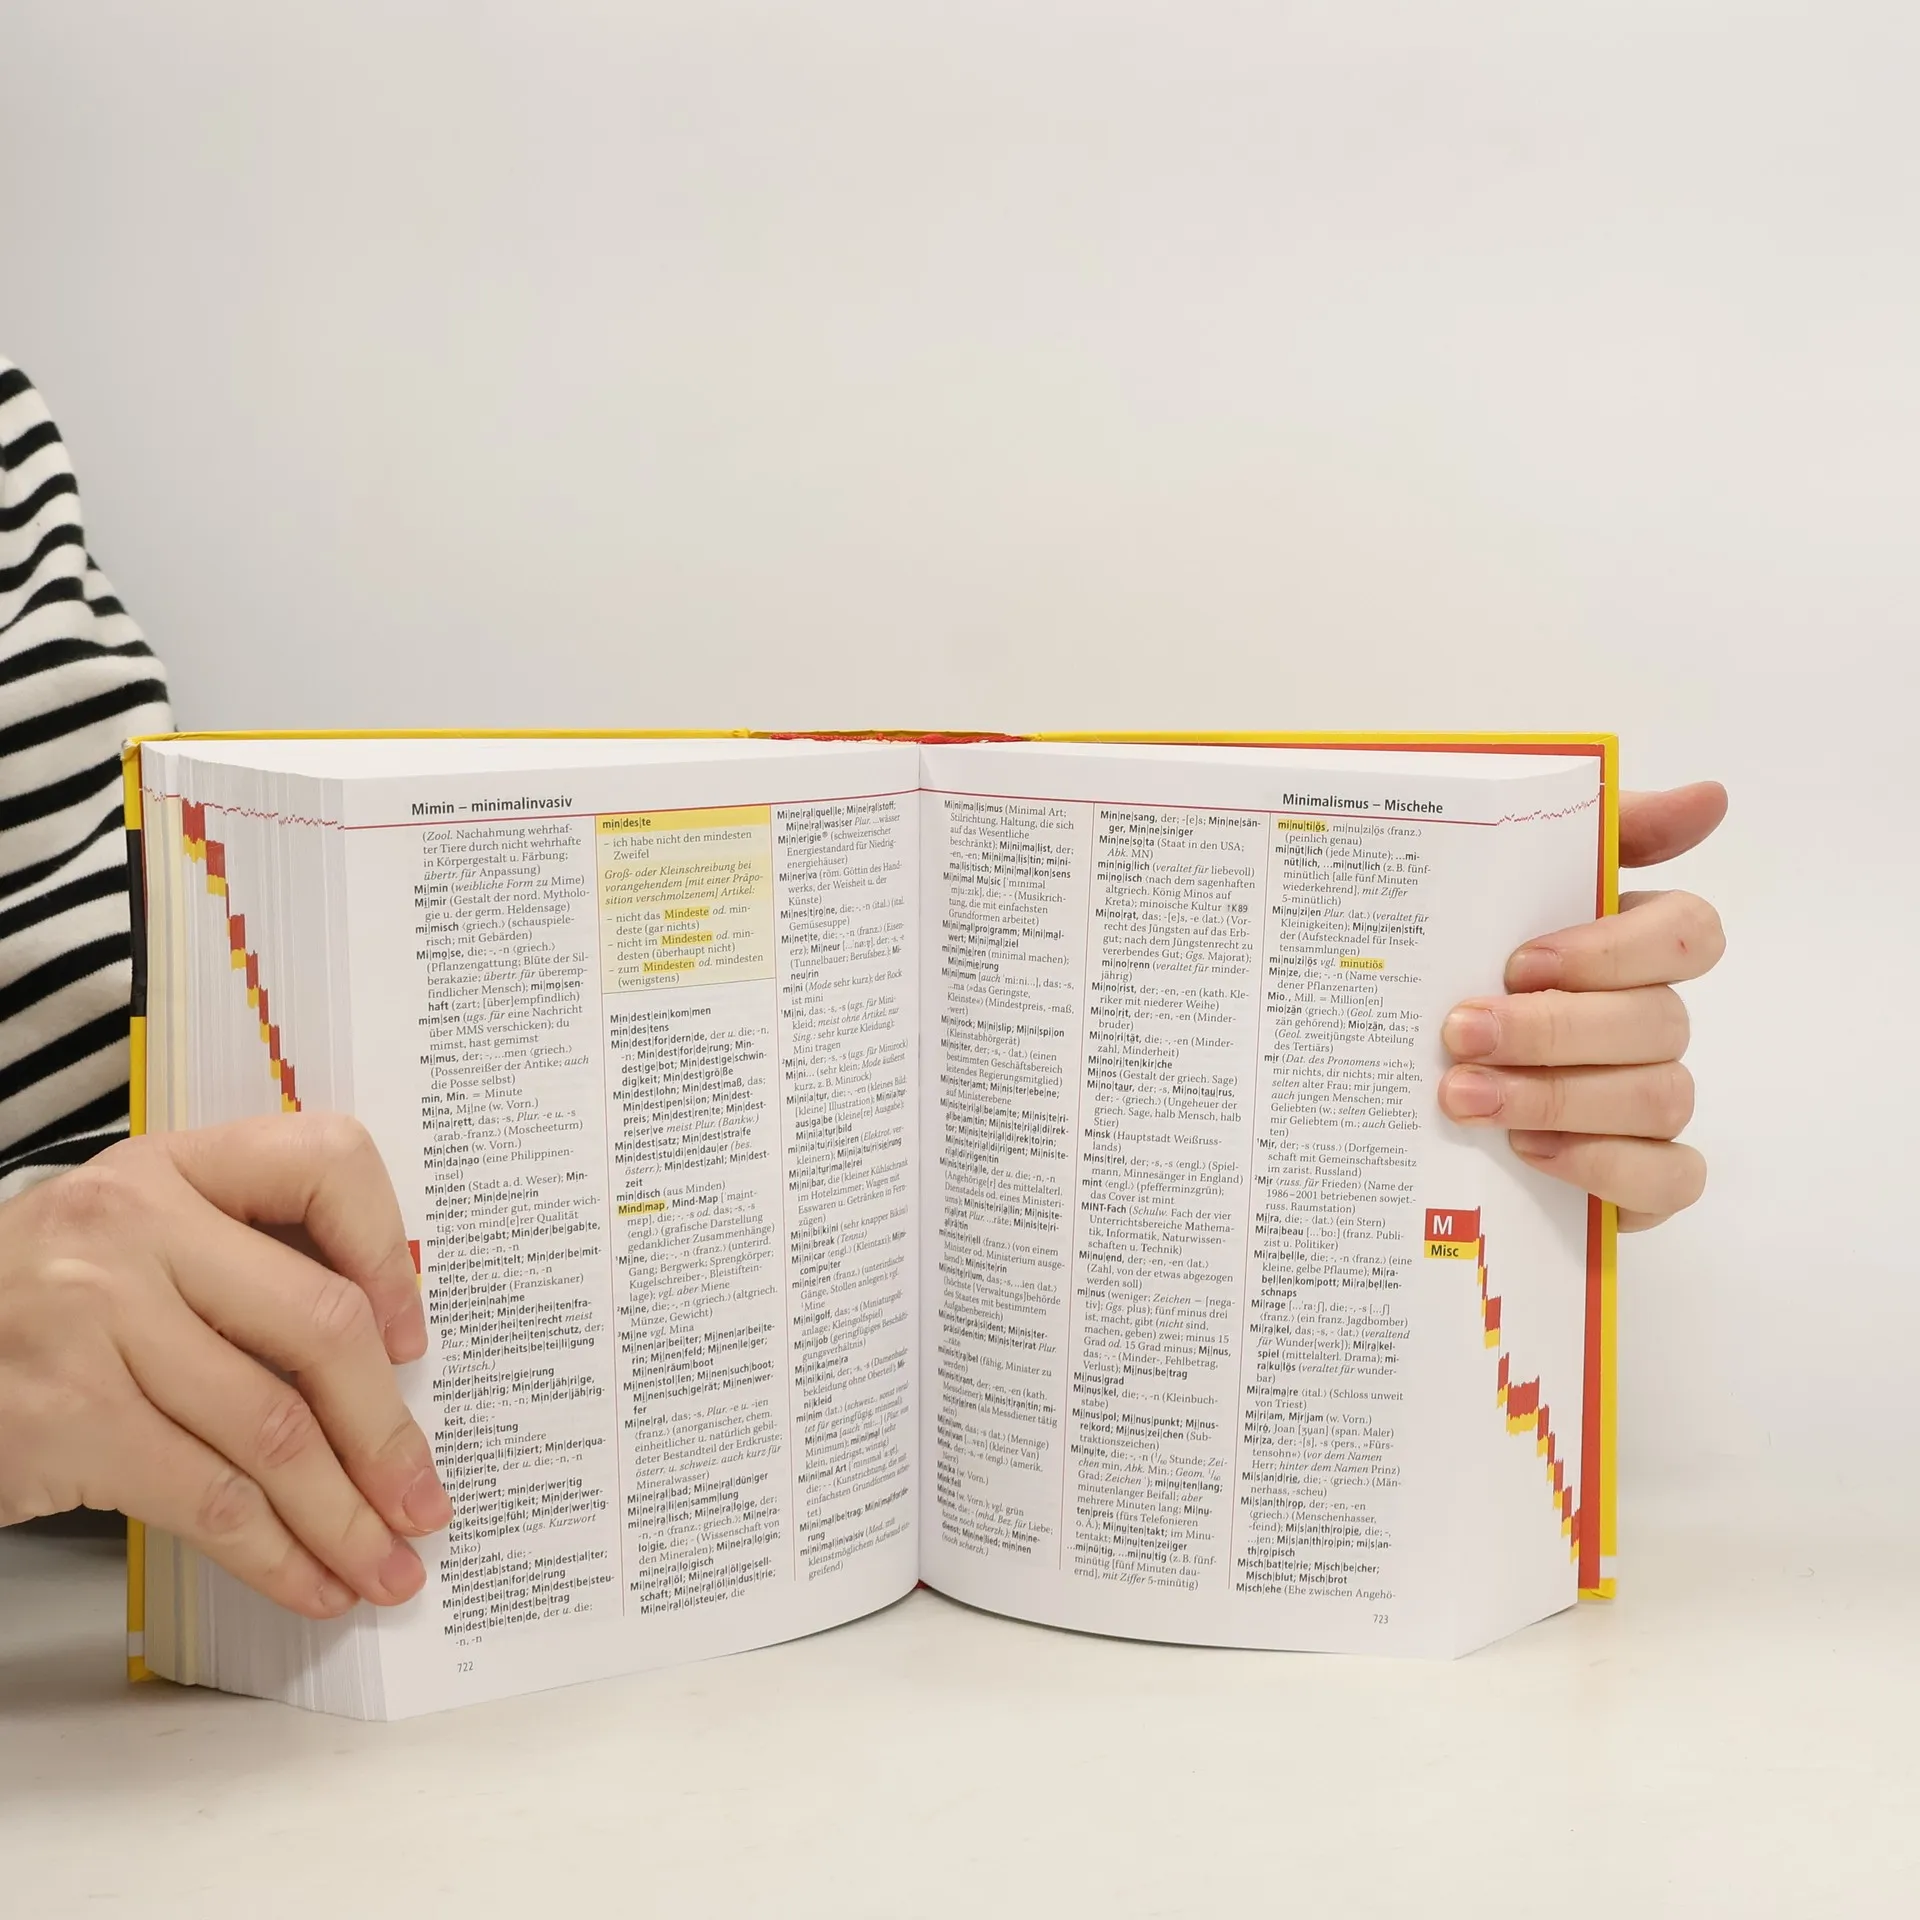 Mimin – minimalinvasiv
(Zool. Nachahmung wehrhaf-
ter Tiere durch nicht wehrhafte
in Körpergestalt u. Färbung;
übertr. für Anpassung)
Mi|min (weibliche Form zu Mime)
Mi|mir (Gestalt der nord. Mytholo-
gie u. der germ. Heldensage)
mi|misch ⟨griech.⟩ (schauspiele-
risch; mit Gebärden)
Mi|mo|se, die; -, -n ⟨griech.⟩
(Pflanzengattung; Blüte der Sil-
berakazie; übertr. für überemp-
findlicher Mensch); mi|mo|sen-
haft (zart; [über]empfindlich)
mim|sen (ugs. für eine Nachricht
über MMS verschicken); du
mimst, hast gemimst
Mi|mus, der; -, ...men ⟨griech.⟩
(Possenreißer der Antike; auch
die Posse selbst)
min, Min. = Minute
Mi|na, Mi|ne (w. Vorn.)
Mi|na|rett, das; -s, Plur. -e u. -s
⟨arab.-franz.⟩ (Moscheeturm)
Min|chen (w. Vorn.)
Min|da|nao (eine Philippinen-
insel)
Min|den (Stadt a. d. Weser); Min-
de|ner; Min|de|ne|rin
min|der; minder gut, minder wich-
tig; von mind[e]rer Qualität
min|der|be|gabt; Min|der|be|gab|te,
der u. die; -n, -n
min|der|be|mit|telt; Min|der|be|mit-
tel|te, der u. die; -n, -n
Min|der|bru|der (Franziskaner)
Min|der|ein|nah|me
Min|der|heit; Min|der|hei|ten|fra-
ge; Min|der|hei|ten|recht meist
Plur.; Min|der|hei|ten|schutz, der;
-es; Min|der|heits|be|tei|li|gung
(Wirtsch.)
Min|der|heits|re|gie|rung
min|der|jäh|rig; Min|der|jäh|ri|ge,
der u. die; -n, -n; Min|der|jäh|rig-
keit, die; -
Min|der|leis|tung
min|dern; ich mindere
min|der|qua|li|fi|ziert; Min|der|qua-
li|fi|zier|te, der u. die; -n, -n
der|wert; min|der|wer|tig
der|wer|tig|keit; Min|der|wer-
tig|keits|ge|fühl; Min|der|wer|tig-
keits|kom|plex (ugs. Kurzwort
Miko)
Min|der|zahl, die; -
Min|dest|ab|stand; Min|dest|al|ter;
Min|dest|an|for|de|rung
Min|dest|bei|trag; Min|dest|be|steu-
e|rung; Min|dest|be|trag
Min|dest|bie|ten|de, der u. die;
-n, -n
722
min|des|te
– ich habe nicht den mindesten
Zweifel
Groß- oder Kleinschreibung bei
vorangehendem [mit einer Präpo-
sition verschmolzenem] Artikel:
– nicht das Mindeste od. min-
deste (gar nichts)
– nicht im Mindesten od. min-
desten (überhaupt nicht)
– zum Mindesten od. mindesten
(wenigstens)
Min|dest|ein|kom|men
min|des|tens
Min|dest|for|dern|de, der u. die; -n,
-n; Min|dest|for|de|rung; Min-
dest|ge|bot; Min|dest|ge|schwin-
dig|keit; Min|dest|grö|ße
Min|dest|lohn; Min|dest|maß, das;
Min|dest|pen|si|on; Min|dest-
preis; Min|dest|ren|te; Min|dest-
re|ser|ve meist Plur. (Bankw.)
Min|dest|satz; Min|dest|stra|fe
Min|dest|stu|di|en|dau|er (bes.
österr.); Min|dest|zahl; Min|dest-
zeit
min|disch (aus Minden)
Mind|map, Mind-Map ['maint-
mɛp], die; -, -s od. das; -s, -s
⟨engl.⟩ (grafische Darstellung
gedanklicher Zusammenhänge)
¹Mi|ne, die; -, -n ⟨franz.⟩ (unterird.
Gang; Bergwerk; Sprengkörper;
Kugelschreiber-, Bleistiftein-
lage); vgl. aber Miene
²Mi|ne, die; -, -n ⟨griech.⟩ (altgriech.
Münze, Gewicht)
³Mi|ne vgl. Mina
Mi|nen|ar|bei|ter; Mi|nen|ar|bei|te-
rin; Mi|nen|feld; Mi|nen|le|ger;
Mi|nen|räum|boot
Mi|nen|stol|len; Mi|nen|such|boot;
Mi|nen|such|ge|rät; Mi|nen|wer-
fer
Mi|ne|ral, das; -s, Plur. -e u. -ien
⟨franz.⟩ (anorganischer, chem.
einheitlicher u. natürlich gebil-
deter Bestandteil der Erdkruste;
österr. u. schweiz. auch kurz für
Mineralwasser)
Mi|ne|ral|bad; Mi|ne|ral|dün|ger
Mi|ne|ra|li|en|samm|lung
mi|ne|ra|lisch; Mi|ne|ra|lo|ge, der;
-n, -n ⟨franz.; griech.⟩; Mi|ne|ra-
lo|gie, die; - (Wissenschaft von
den Mineralen); Mi|ne|ra|lo|gin;
mi|ne|ra|lo|gisch
Mi|ne|ral|öl; Mi|ne|ral|öl|ge|sell-
schaft; Mi|ne|ral|öl|in|dus|t|rie;
Mi|ne|ral|öl|steu|er, die
Mi|ne|ral|quel|le; Mi|ne|ral|stoff;
Mi|ne|ral|was|ser Plur. ...wässer
Mi|n|er|gie® (schweizerischer
Energiestandard für Niedrig-
energiehäuser)
Mi|ner|va (röm. Göttin des Hand-
werks, der Weisheit u. der
Künste)
Mi|nes|t|ro|ne, die; -, -n ⟨ital.⟩ (ital.
Gemüsesuppe)
Mi|net|te, die; -, -n ⟨franz.⟩ (Eisen-
erz); Mi|neur
(Tunnelbauer; Berufsbez.); Mi-
neu|rin
mi|ni (Mode sehr kurz); der Rock
ist mini
¹Mi|ni, das; -s, -s (ugs. für Mini-
kleid; meist ohne Artikel, nur
Sing.: sehr kurze Kleidung);
Mini tragen
²Mi|ni, der; -s, -s (ugs. für Minirock)
Mi|ni... (sehr klein; Mode äußerst
kurz, z. B. Minirock)
Mi|ni|a|tur, die; -, -en (kleines Bild;
[kleine] Illustration); Mi|ni|a|tur-
aus|ga|be (kleine[re] Ausgabe);
Mi|ni|a|tur|bild
mi|ni|a|tu|ri|sie|ren (Elektrot. ver-
kleinern); Mi|ni|a|tu|ri|sie|rung
Mi|ni|a|tur|ma|le|rei
Mi|ni|bar, die (kleiner Kühlschrank
im Hotelzimmer; Wagen mit
Esswaren u. Getränken in Fern-
zügen)
Mi|ni|bi|ki|ni (sehr knapper Bikini)
Mi|ni|break (Tennis)
Mi|ni|car ⟨engl.⟩ (Kleintaxi); Mi|ni-
com|pu|ter
mi|nie|ren ⟨franz.⟩ (unterirdische
Gänge, Stollen anlegen); vgl.
¹Mine
Mi|ni|golf, das; -s (Miniaturgolf-
anlage; Kleingolfspiel)
Mi|ni|job (geringfügiges Beschäfti-
gungsverhältnis)
Mi|ni|ka|me|ra
Mi|ni|ki|ni, der; -s, -s (Damenbade-
bekleidung ohne Oberteil); Mi-
ni|kleid
mi|nim ⟨lat.⟩ (schweiz., sonst veral-
tet für geringfügig, minimal)
Minimum); mi|ni|mal (sehr
klein, niedrigst, winzig)
Mi|ni|mal Art
die; - - (Kunstrichtung, die mit
einfachsten Grundformen arbei-
tet)
Mi|ni|mal|be|trag; Mi|ni|mal|for|de-
rung
mi|ni|mal|in|va|siv (Med. mit
kleinstmöglichem Aufwand ein-
greifend)
Minimalismus – Mischehe
Mi|ni|ma|lis|mus (Minimal Art;
Stilrichtung, Haltung, die sich
auf das Wesentliche
beschränkt); Mi|ni|ma|list, der;
-en, -en; Mi|ni|ma|lis|tin; mi|ni-
ma|lis|tisch; Mi|ni|mal|kon|sens
Mi|ni|mal Mu|sic ['mɪnɪməl
'mjuːzɪk], die; - - (Musikrich-
tung, die mit einfachsten
Grundformen arbeitet)
Mi|ni|mal|pro|gramm; Mi|ni|mal-
wert; Mi|ni|mal|ziel
mi|ni|mie|ren (minimal machen);
Mi|ni|mie|rung
Mi|ni|mum [auch 'miːni...], das; -s,
...ma (»das Geringste,
Kleinste«) (Mindestpreis, -maß,
-wert)
Mi|ni|rock; Mi|ni|slip; Mi|ni|spi|on
(Kleinstabhörgerät)
Mi|nis|ter, der; -s, - ⟨lat.⟩ (einen
bestimmten Geschäftsbereich
leitendes Regierungsmitglied)
Mi|nis|ter|amt; Mi|nis|ter|ebe|ne;
auf Ministerebene
Mi|nis|te|ri|al|be|am|te; Mi|nis|te|ri-
al|be|am|tin; Mi|nis|te|ri|al|di|rek-
tor; Mi|nis|te|ri|al|di|rek|to|rin;
Mi|nis|te|ri|al|di|ri|gent; Mi|nis|te-
ri|al|di|ri|gen|tin
Mi|nis|te|ri|a|le, der u. die; -n, -n
(Angehörige[r] des mittelalterl.
Dienstadels od. eines Ministeri-
ums); Mi|nis|te|ri|a|lin; Mi|nis|te-
ri|al|rat Plur. ...räte; Mi|nis|te|ri-
al|rä|tin
mi|nis|te|ri|ell ⟨franz.⟩ (von einem
Minister od. Ministerium ausge-
hend); Mi|nis|te|rin
Mi|nis|te|ri|um, das; -s, ...ien ⟨lat.⟩
(höchste [Verwaltungs]behörde
des Staates mit bestimmtem
Aufgabenbereich)
Mi|nis|ter|prä|si|dent; Mi|nis|ter-
prä|si|den|tin; Mi|nis|ter|rat Plur.
...räte
mi|nis|t|ra|bel (fähig, Minister zu
werden)
Mi|nis|t|rant, der; -en, -en (kath.
Messdiener); Mi|nis|t|ran|tin; mi-
nis|t|rie|ren (als Messdiener tätig
sein)
Mi|ni|um, das; -s ⟨lat.⟩ (Mennige)
Mi|ni|van [...vɛn] (kleiner Van)
Mink, der; -s, -e ⟨engl.⟩ (amerik.
Nerz)
Min|ka (w. Vorn.)
Mink|fell
Min|na (w. Vorn.); vgl. grün
Min|ne, die; - (mhd. Bez. für Liebe;
heute noch scherzh.); Min|ne-
dienst; Min|ne|lied; min|nen
(noch scherzh.)
Min|ne|sang, der; -[e]s; Min|ne|sän-
ger, Min|ne|sin|ger
Min|ne|so|ta (Staat in den USA;
Abk. MN)
min|nig|lich (veraltet für liebevoll)
mi|no|isch ⟨nach dem sagenhaften
altgriech. König Minos auf
Kreta⟩; minoische Kultur ↑K89
Mi|no|rat, das; -[e]s, -e ⟨lat.⟩ (Vor-
recht des Jüngsten auf das Erb-
gut; nach dem Jüngstenrecht zu
vererbendes Gut; Ggs. Majorat);
mi|no|renn (veraltet für minder-
jährig)
Mi|no|rist, der; -en, -en (kath. Kle-
riker mit niederer Weihe)
Mi|no|rit, der; -en, -en (Minder-
bruder)
Mi|no|ri|tät, die; -, -en (Minder-
zahl, Minderheit)
Mi|no|ri|ten|kir|che
Mi|nos (Gestalt der griech. Sage)
Mi|no|taur, der; -s, Mi|no|tau|rus,
der; - ⟨griech.⟩ (Ungeheuer der
griech. Sage, halb Mensch, halb
Stier)
Minsk (Hauptstadt Weißruss-
lands)
Mins|t|rel, der; -s, -s ⟨engl.⟩ (Spiel-
mann, Minnesänger in England)
mint ⟨engl.⟩ (pfefferminzgrün);
das Cover ist mint
MINT-Fach (Schulw. Fach der vier
Unterrichtsbereiche Mathema-
tik, Informatik, Naturwissen-
schaften u. Technik)
Mi|nu|end, der; -en, -en ⟨lat.⟩
(Zahl, von der etwas abgezogen
werden soll)
mi|nus (weniger; Zeichen – [nega-
tiv]; Ggs. plus); fünf minus drei
ist, macht, gibt (nicht sind,
machen, geben) zwei; minus 15
Grad od. 15 Grad minus; Mi|nus,
das; -, - (Minder-, Fehlbetrag,
Verlust); Mi|nus|be|trag
Mi|nus|grad
Mi|nus|kel, die; -, -n (Kleinbuch-
stabe)
Mi|nus|pol; Mi|nus|punkt; Mi|nus-
re|kord; Mi|nus|zei|chen (Sub-
traktionszeichen)
Mi|nu|te, die; -, -n (¹/₆₀ Stunde; Zei-
chen min, Abk. Min.; Geom. ¹/₆₀
Grad; Zeichen '); mi|nu|ten|lang;
minutenlanger Beifall; aber
mehrere Minuten lang; Mi|nu-
ten|preis (fürs Telefonieren
o. Ä.); Mi|nu|ten|takt; im Minu-
tentakt; Mi|nu|ten|zei|ger
...mi|nü|tig, ...mi|nu|tig (z. B. fünf-
minütig [fünf Minuten dau-
ernd], mit Ziffer 5-minütig)
mi|nu|ti|ös, mi|nu|zi|ös ⟨franz.⟩
(peinlich genau)
mi|nüt|lich (jede Minute); ...mi-
nüt|lich, ...mi|nut|lich (z. B. fünf-
minütlich [alle fünf Minuten
wiederkehrend], mit Ziffer
5-minütlich)
Mi|nu|zi|en Plur. ⟨lat.⟩ (veraltet für
Kleinigkeiten); Mi|nu|zi|en|stift,
der (Aufstecknadel für Insek-
tensammlungen)
mi|nu|zi|ös vgl. minutiös
Min|ze, die; -, -n (Name verschie-
dener Pflanzenarten)
Mio., Mill. = Million[en]
mio|zän ⟨griech.⟩ (Geol. zum Mio-
zän gehörend); Mio|zän, das; -s
(Geol. zweitjüngste Abteilung
des Tertiärs)
mir (Dat. des Pronomens »ich«);
mir nichts, dir nichts; mir alten,
selten alter Frau; mir jungem,
auch jungen Menschen; mir
Geliebten (w.; selten Geliebter);
mir Geliebtem (m.; auch Gelieb-
ten)
¹Mir, der; -s ⟨russ.⟩ (Dorfgemein-
schaft mit Gemeinschaftsbesitz
im zarist. Russland)
²Mir ⟨russ. für Frieden⟩ (Name der
1986–2001 betriebenen sowjet.-
russ. Raumstation)
Mi|ra, die; - ⟨lat.⟩ (ein Stern)
Mi|ra|beau [...'boː] (franz. Publi-
zist u. Politiker)
Mi|ra|bel|le, die; -, -n ⟨franz.⟩ (eine
kleine, gelbe Pflaume); Mi|ra-
bel|len|kom|pott; Mi|ra|bel|len-
schnaps
Mi|rage [...'raːʃ], die; -, -s [...ʃ]
⟨franz.⟩ (ein franz. Jagdbomber)
Mi|ra|kel, das; -s, - ⟨lat.⟩ (veraltend
für Wunder[werk]); Mi|ra|kel-
spiel (mittelalterl. Drama); mi-
ra|ku|lös (veraltet für wunder-
bar)
Mi|ra|ma|re ⟨ital.⟩ (Schloss unweit
von Triest)
Mi|ri|am, Mir|jam (w. Vorn.)
Mi|ró, Joan [ʒu̯an] (span. Maler)
Mir|za, der; -[s], -s ⟨pers., »Fürs-
tensohn«⟩ (vor dem Namen
Herr; hinter dem Namen Prinz)
Mi|s|an|d|rie, die; - ⟨griech.⟩ (Män-
nerhass, -scheu)
Mi|s|an|th|rop, der; -en, -en
⟨griech.⟩ (Menschenhasser,
-feind); Mi|s|an|th|ro|pie, die; -,
...ien; Mi|s|an|th|ro|pin; mi|s|an-
th|ro|pisch
Misch|bat|te|rie; Misch|be|cher;
Misch|blut; Misch|brot
Misch|ehe (Ehe zwischen Angehö-
M
Misc
723